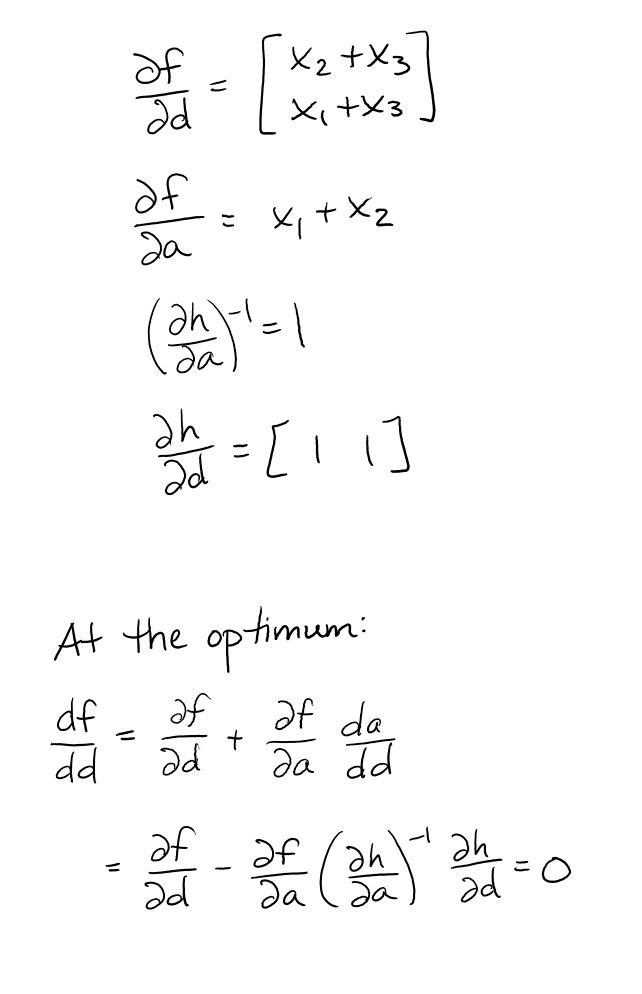 ∂f/∂d = [x₂ + x₃
x₁ + x₃]
∂f/∂a = x₁ + x₂
(∂h/∂a)⁻¹ = 1
∂h/∂d = [1 1]
At the optimum:
df/dd = ∂f/∂d + ∂f/∂a da/dd
= ∂f/∂d - ∂f/∂a (∂h/∂a)⁻¹ ∂h/∂d = 0